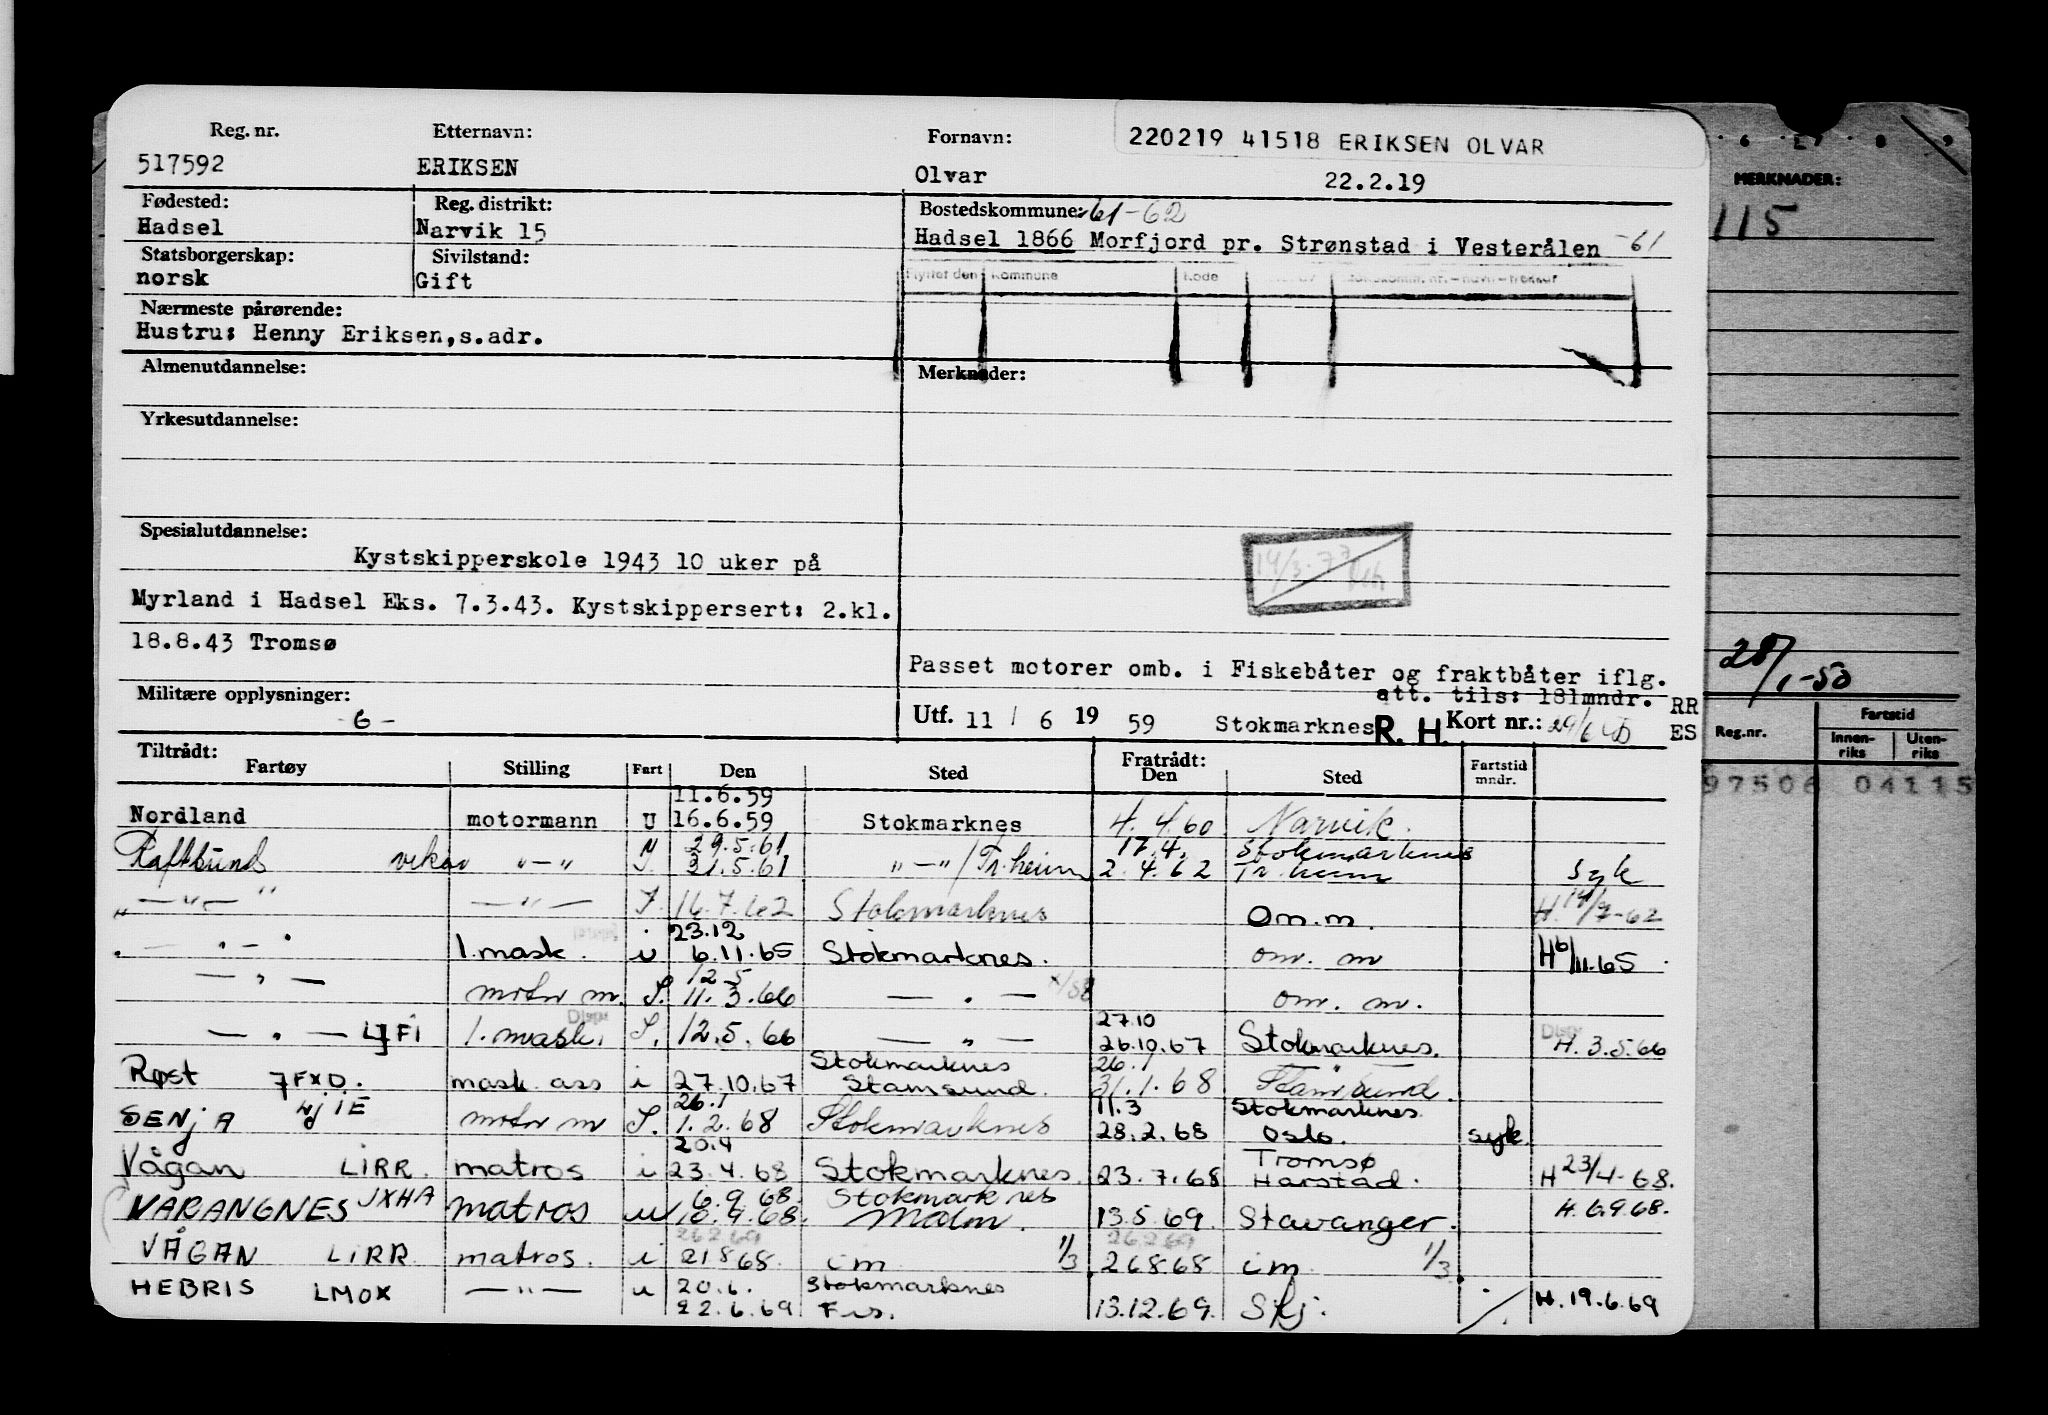 Reg. nr. Etternavn: Fornavn: 220219 41518 ERIKSEN OLVAR
517592 ERIKSEN Olvar 22.2.19
Fødested: Reg. distrikt: Bostedskommune: 61-62
Hadsel Narvik 15 Hadsel 1866 Morfjord pr. Strønstad i Vesterålen -61
Statsborgerskap: Sivilstand: Flyttet den Kommune Kode
norsk Gift
Nærmeste pårørende:
Hustru: Henny Eriksen, s.adr.
Almenutdannelse: Merknader:
Yrkesutdannelse:
Spesialutdannelse:
Kystskipperskole 1943 10 uker på
14/3-77
Myrland i Hadsel Eks. 7.3.43. Kystskippersert: 2.kl.
18.8.43 Tromsø
Passet motorer omb. i Fiskebåter og fraktbåter iflg.
att. tils: 181mndr. RR
Militære opplysninger:
-6- Utf. 11 / 6 19 59 Stokmarknes R. H. Kort nr.: ES
Tiltrådt: Fratrådt:
Fartøy Stilling Fart Den Sted Den Sted Fartstid mndr.
11.6.59
Nordland motormann U 16.6.59 Stokmarknes 4.4.60 Narvik.
29.5.61 17.4. Stokmarknes
Raftsund vikar "-" 21.5.61 "-"/Tr.heim 2.4.62 Tr.heim syk
"-"-" -"- 16.7.62 Stokmarknes om.m. H. 14/7-62
23.12
-"- 1.mask. u 6.11.65 Stokmarknes. om. m H 6/11.65
12.5
-"- motor m. S. 11.3.66 -"- om. m.
Disp 27.10
-"- LJFI 1.mask. S. 12.5.66 -"- 26.10.67 Stokmarknes. Disp H. 3.5.66
Stokmarknes 26.1
Røst JFXD. mask ass i 27.10.67 Stamsund. 31.1.68 Stamsund.
26.1 11.3 Stokmarknes
SENJA LJIE motor m S. 1.2.68 Stokmarknes 28.2.68 Oslo. syk.
20.4 Tromsø
Vågan LIRR. matros i 23.4.68 Stokmarknes 23.7.68 Harstad. H 23/4-68.
6.9.68. Stokmarknes
VARANGNES JXHA matros u 10.9.68. Malm. 13.5.69. Stavanger. H. 6.9.68.
26269 26269
VÅGAN LIRR. matros. i 21868 im 1/3 26868 im 1/3
20.6. Stokmarknes
HEBRIS LMOX -"- u 22.6.69 Fs. 13.12.69. Skj. H. 19.6.69
6 8 9
MERKNADER:
115
28/1-50
Reg.nr. Fartstid
Innenriks Utenriks
97506 04115